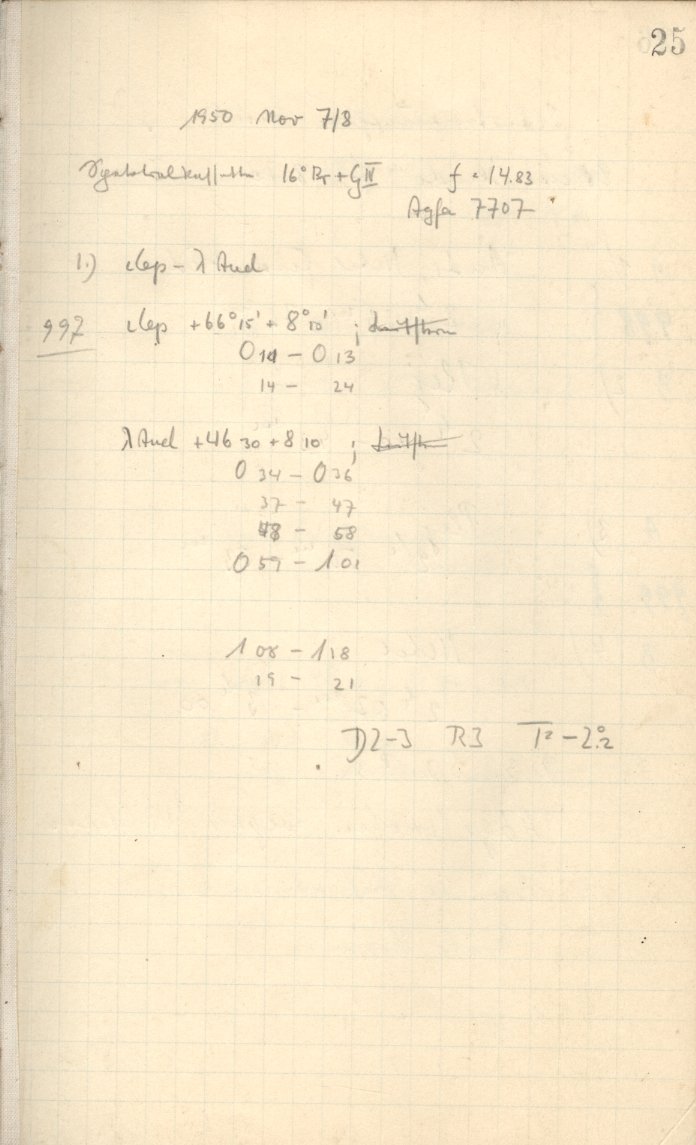 25
1950 Nov 7/8
16° Br + G IV f = 14.83
Agfa 7707
1.) ι Cep – λ And
997 ι Cep +66° 15' + 8° 10' ;
0 14 – 0 13
14 – 24
λ And +46 30 + 8 10 ;
0 34 – 0 36
37 – 47
48 – 58
0 59 – 1 01
1 08 – 1 18
19 – 21
D2–3 R3 T = –2°.2